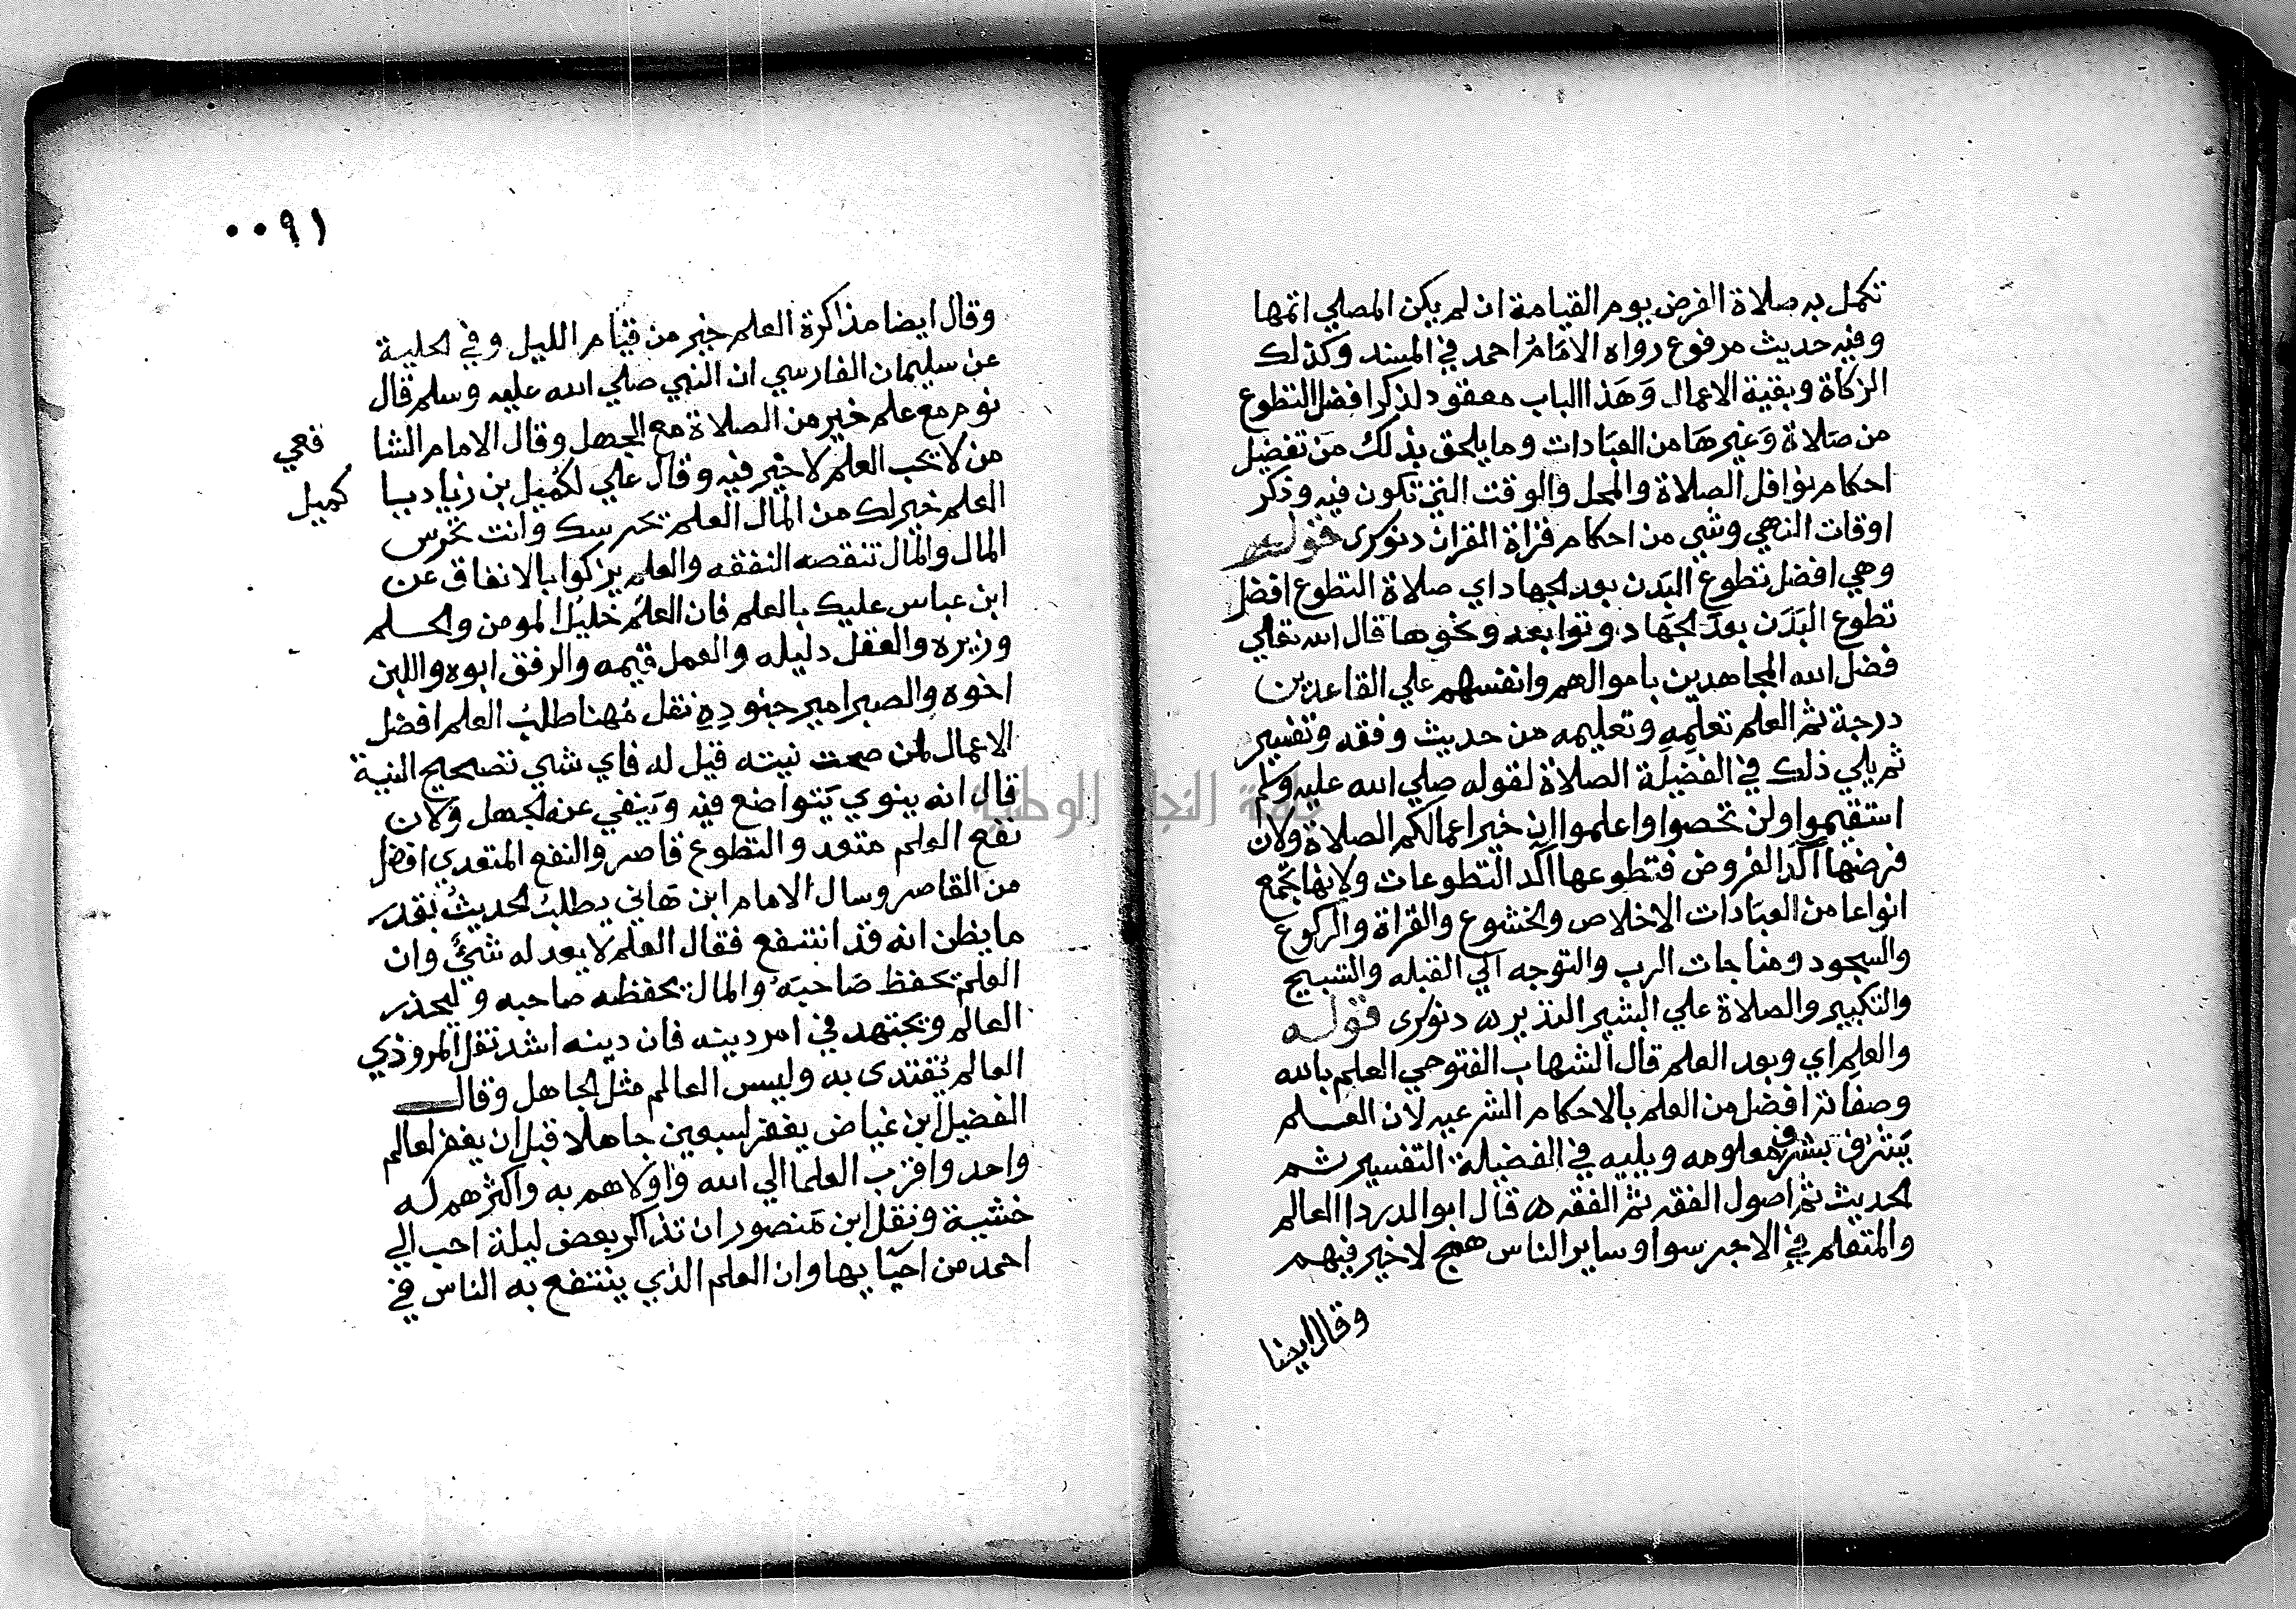 تكمل به صلاة الفرض يوم القيامة ان لم يكن المصلي اتمها
وفيه حديث مرفوع رواه الامام احمد في المسند وكذلك
الزكاة وبقية الاعمال وَهَذا الباب معقود لذكر افضل التطوع
من صَلاة وَغيرهَا من العبَادات وما يلحق بذلك من تفضيل
احكام نوافل الصلاة والمحل والوقت التي تكون فيه وذكر
اوقات النهي وشي من احكام قراة القران دنوكرى قوله
وهي افضل تطوع البدن بعد الجهاد اي صلاة التطوع افضل
تطوع البَدَن بعدَ الجهَاد وتوابعه ونحوها قال الله تعالي
فضل الله المجاهدين باموالهم وانفسهم علي القاعدين
درجة ثم العلم تعلمِهِ وتعليمه من حديث وفقه وتفسير
ثم يلي ذلك في الفضيلة الصلاة لقوله صلي الله عليه وسلم
استقيموا ولن تحصوا واعلموا ان خير اعمالكم الصلاة ولان
فرضها آكد الفروض فتطوعها آكد التطوعات ولانها تجمع
انواعا من العبَادات الاخلاص والخشوع والقراة والركوع
والسجود ومناجات الرب والتوجه الي القبله والتسبيح
والتكبير والصلاة علي البشير النذير ه دنوكرى قوله
والعلم اي وبعد العلم قال الشهاب الفتوحي العلم بالله
وصفاته افضل من العلم بالاحكام الشرعيه لان العلم
يَشرف بشرف معلومه ويليه في الفضيلة التفسير ثم
الحديث ثم اصول الفقه ثم الفقه ه قال ابو الدردا العالم
والمتعلم في الاجر سوا وساير الناس همج لا خير فيهم
وقال ايضا
٠٠٩١
وقال ايضا مذاكرة العلم خير من قيام الليل وفي الحلية
عن سليمان الفارسي ان النبي صلي الله عليه وسلم قال
نوم مع علم خير من الصلاة مع الجهل وقال الامام الشا فعي
من لا يحب العلم لا خير فيه وقال علي لكميل بن زياد يا كميل
العلم خير لك من المال العلم يحرسك وانت تحرس
المال والمال تنقصه النفقه والعلم يزكوا بالانفاق عن
ابن عباس عليك بالعلم فان العلم خليل المومن والحلم
وزيره والعقل دليله والعمل قيمه والرفق ابوه واللين
اخوه والصبر امير جنودِهِ نقل مُهنا طلبُ العلم افضل
الاعمال لمن صحت نيته قيل له فاي شي تصحيح النية
قال انه ينوي يَتواضع فيه وَينفي عنه الجهل ولان
نفع العلم متعد والتطوع قاصر والنفع المتعدي افضل
من القاصر وسال الامام ابن هَاني يطلبُ الحديثُ بقدر
ما يظن انه قد انتفع فقال العلم لا يعدله شيءٌ وان
العلم يحفظ صَاحبَهُ والمال يحفظه صاحبه وليحذر
العالم ويجتهد في امر دينه فان دينه اشد نقل المروذي
العالم يُقتدى به وليس العالم مثل الجاهل وقال
الفضيل ابن عياض يغفر لسبعين جاهلا قبل ان يغفر لعالم
واحد واقرب العلما الي الله وَاولاهم به واكثرهم له
خشية ونقل ابن مَنصور ان تذاكر بعض ليلة احب الي
احمد من احيَآيها وان العلم الذي ينتفع به الناس في
جامعة النجاح الوطنية